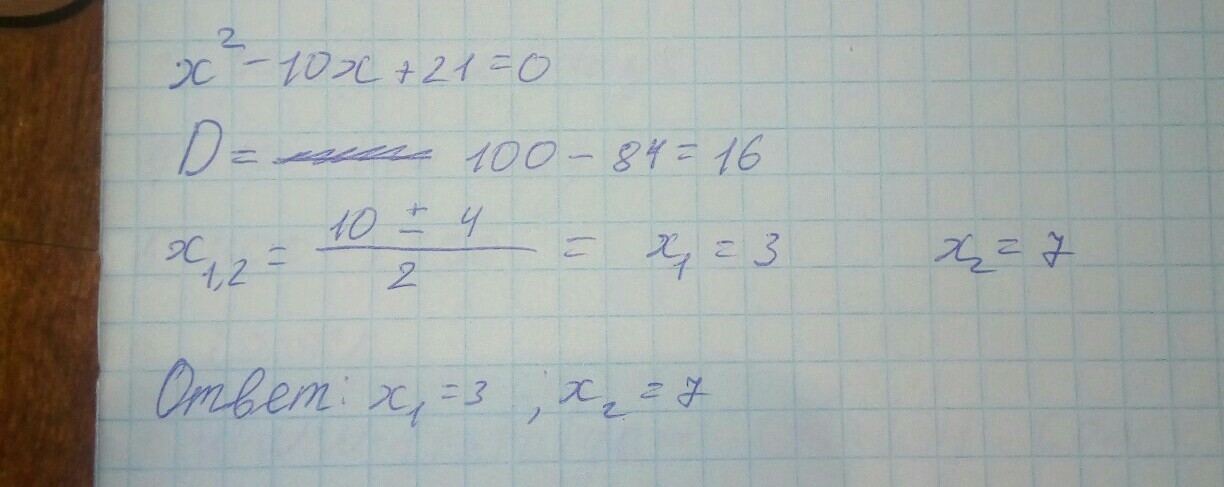 x² - 10x + 21 = 0
D = 100 - 84 = 16
x₁,₂ = (10 ± 4)/2 = x₁ = 3 x₂ = 7
Ответ: x₁ = 3 ; x₂ = 7